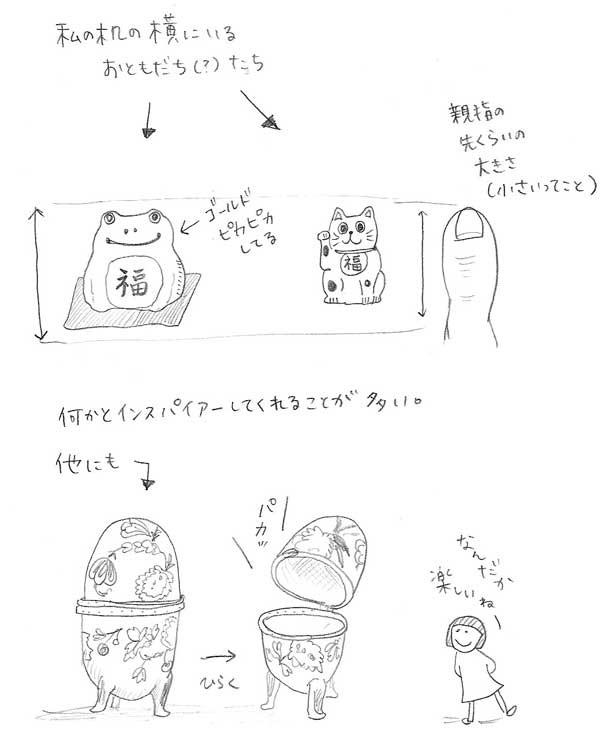 私の机の横にいる
おともだち(?)たち
親指の
先くらいの
大きさ
(小さいってこと)
ゴールド
ピカピカ
してる
福
福
何かとインスパイアーしてくれることが多い。
他にも
パカッ
ひらく
なんだか
楽しいね